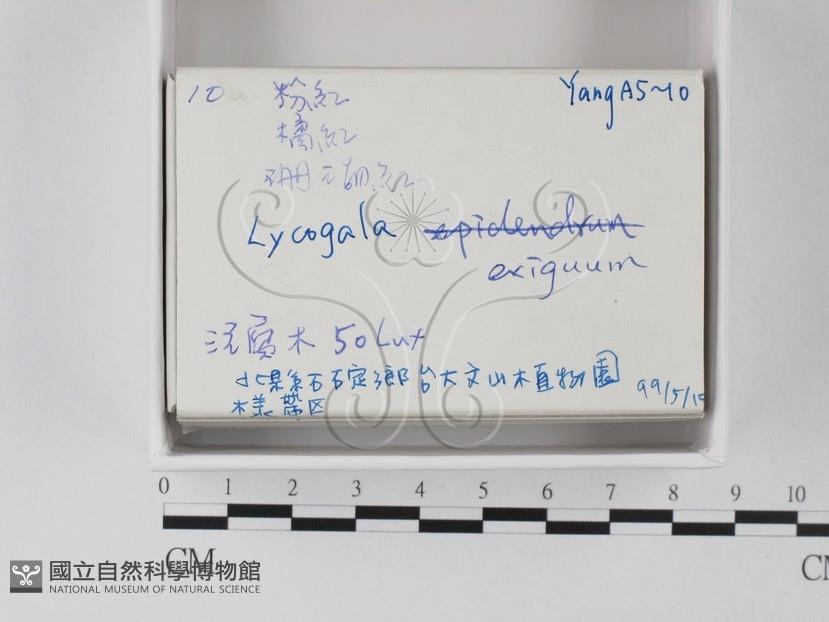 10 粉紅 Yang A5~10
橘紅
珊瑚紅
Lycogala epidendrum
exiguum
腐木 50 Lux
北縣石碇鄉台大文山植物園 99/5/1
樣帶区
0 1 2 3 4 5 6 7 8 9 10
CM CM
國立自然科學博物館
NATIONAL MUSEUM OF NATURAL SCIENCE